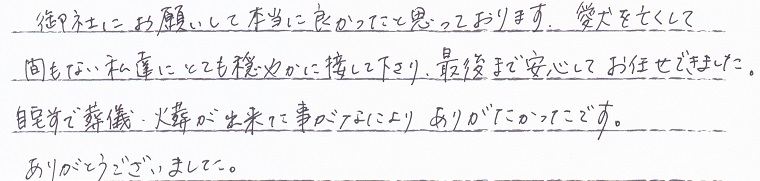 御社にお願いして本当に良かったと思っております. 愛犬を亡くして
間もない私達にとても穏やかに接して下さり、最後まで安心してお任せできました。
自宅前で葬儀・火葬が出来た事がなにより ありがたかったです。
ありがとうございました。